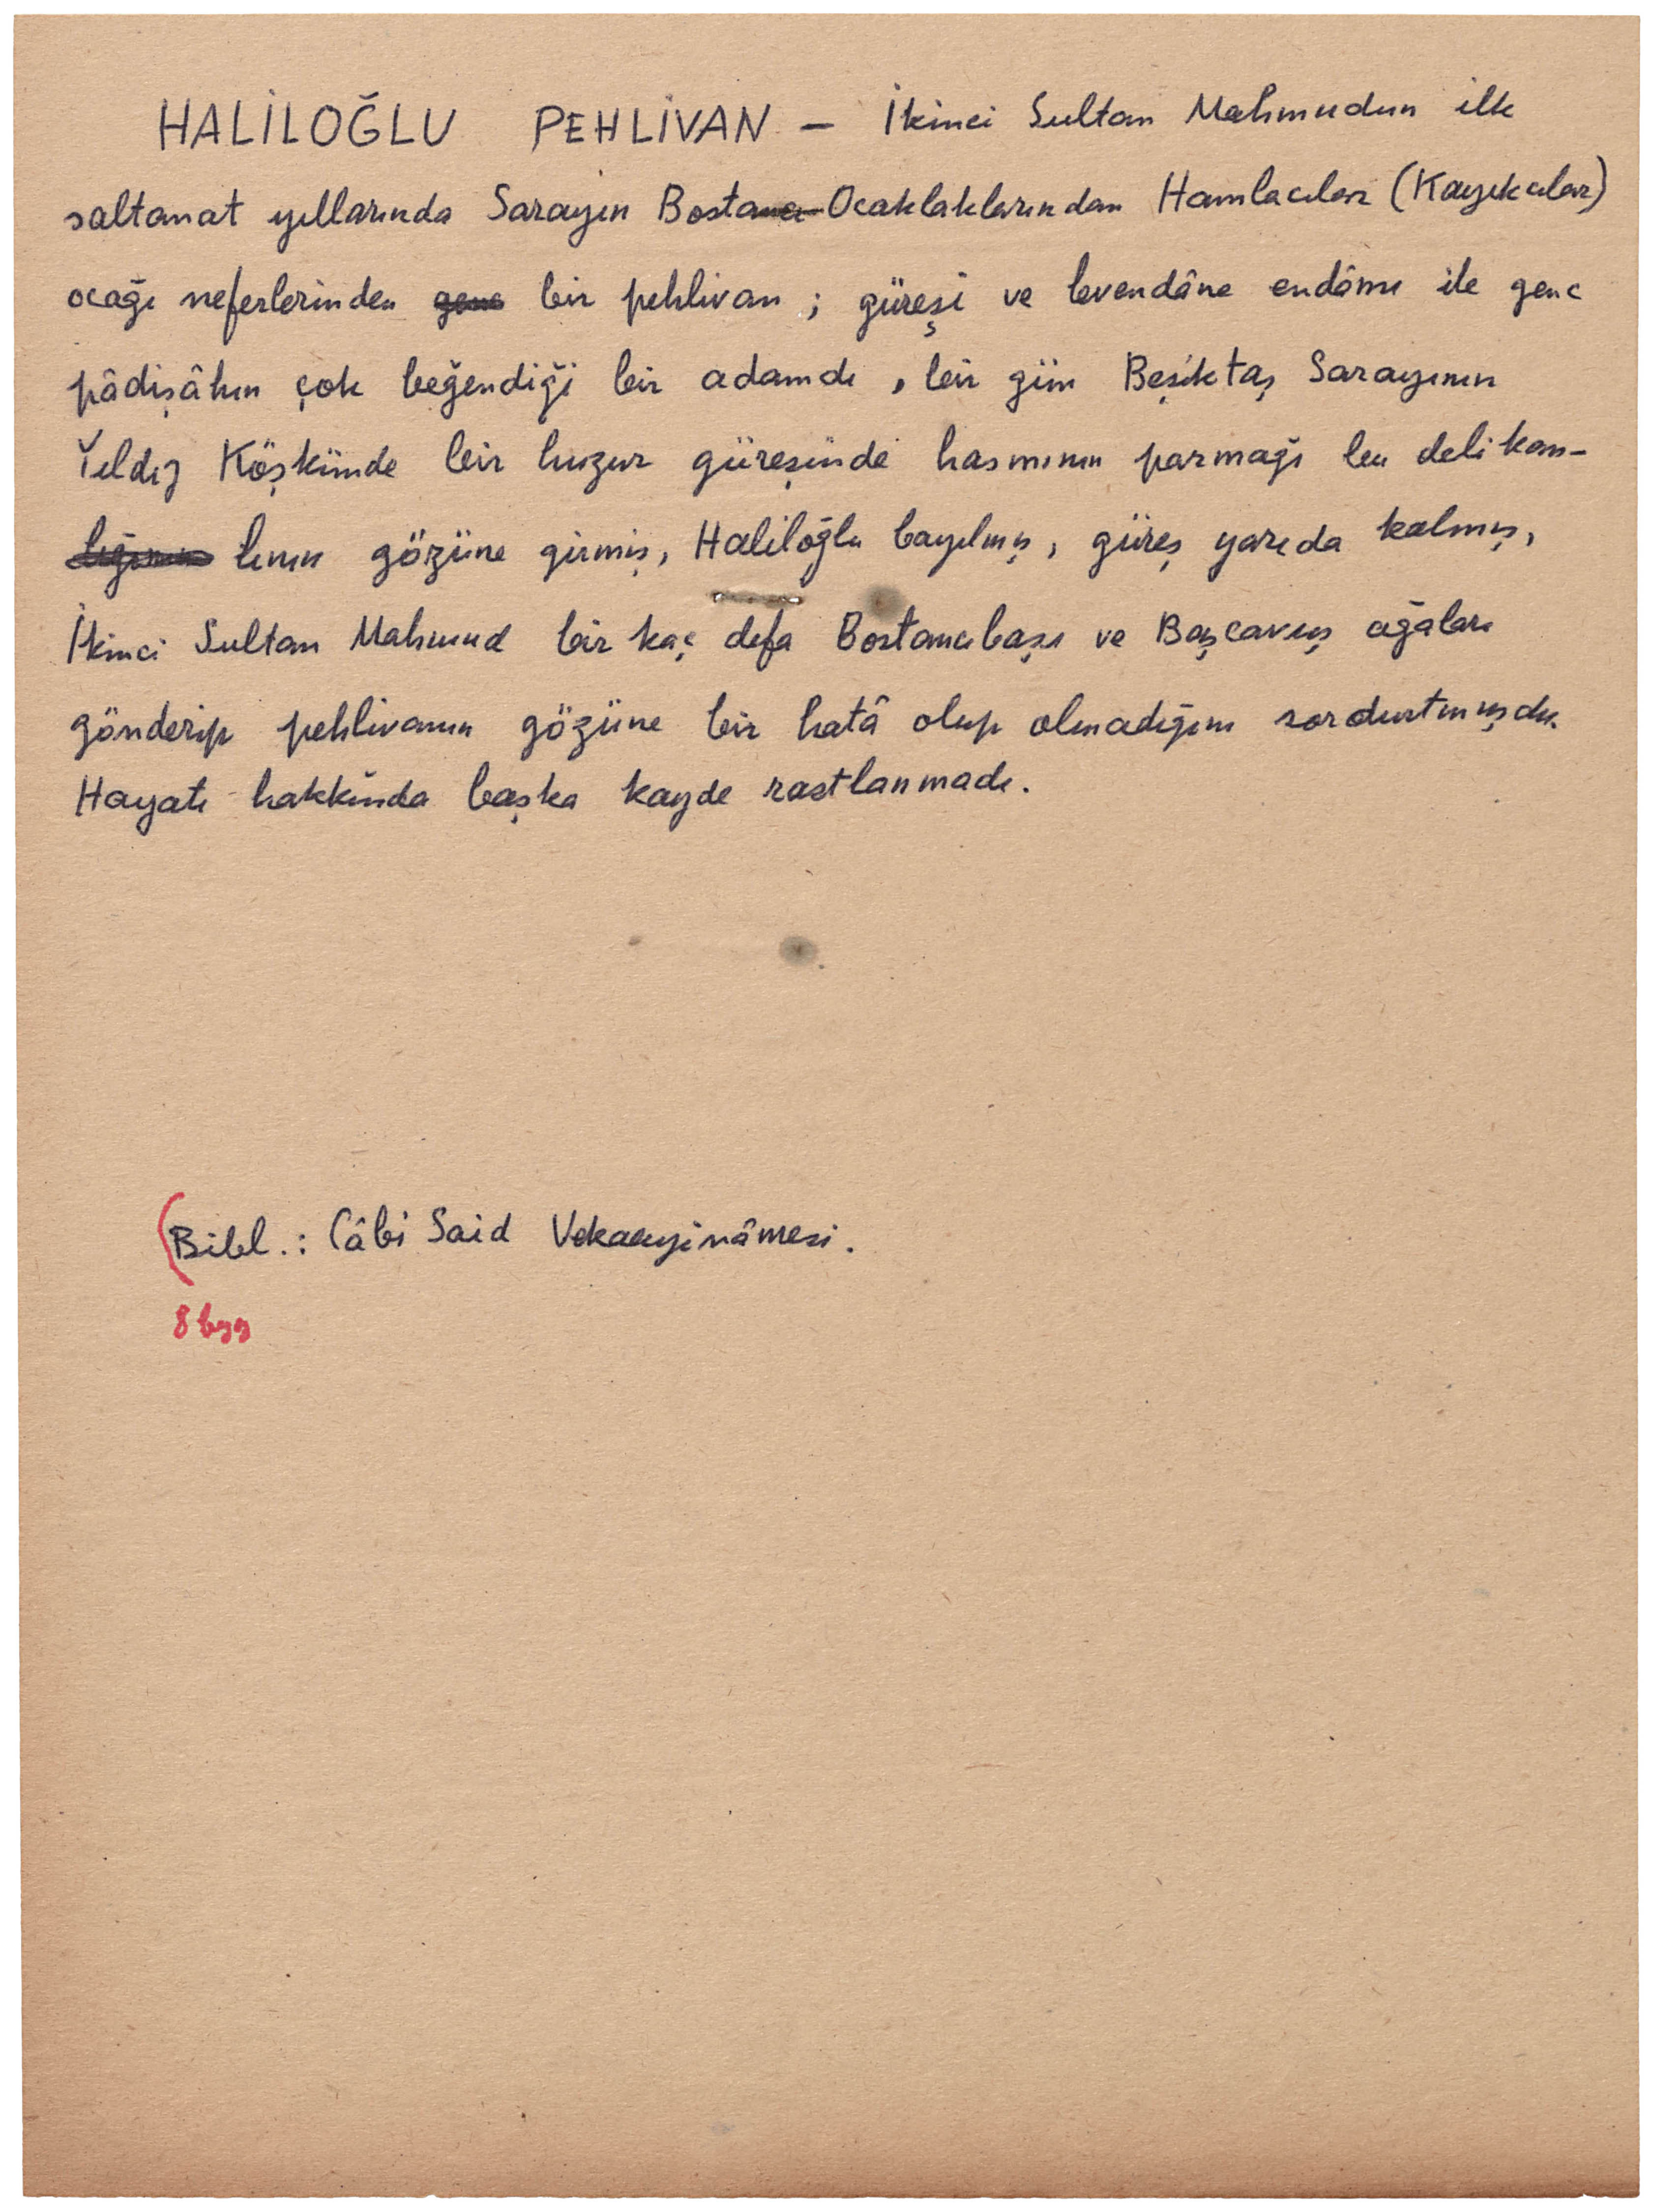 HALİLOĞLU PEHLİVAN — İkinci Sultan Mahmudun ilk
saltanat yıllarında Sarayın Bostancı Ocaklaklarından Hamlacılar (Kayıkcılar)
ocağı neferlerinden genc bir pehlivan ; güreşi ve levendâne endâmı ile genc
pâdişâhın çok beğendiği bir adamdı , bir gün Beşiktaş Sarayının
Yıldız Köşkünde bir huzur güreşinde hasmının parmağı bu delikan-
lığının lının gözüne girmiş, Haliloğlu bayılmış, güreş yarıda kalmış,
İkinci Sultan Mahmud bir kaç defa Bostancıbaşı ve Başcavuş ağaları
gönderip pehlivanın gözüne bir hatâ olup olmadığını sordurtmuşdu.
Hayatı hakkında başka kayde rastlanmadı.
(Bibl.: Câbi Said Vekaayinâmesi.